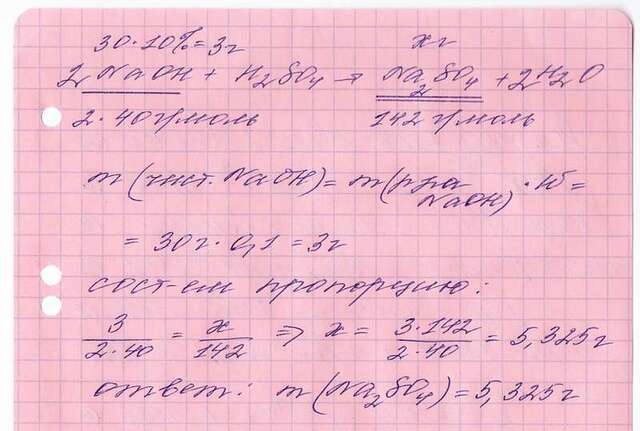 30·10%=3г хг
2NaOH + H₂SO₄ → Na₂SO₄ + 2H₂O
2·40г/моль 142 г/моль
m (чист. NaOH) = m(р-ра NaOH) · ω =
= 30г · 0,1 = 3г
сост-ем пропорцию:
3/2·40 = x/142 => x = 3·142/2·40 = 5,325г
ответ: m (Na₂SO₄) = 5,325г